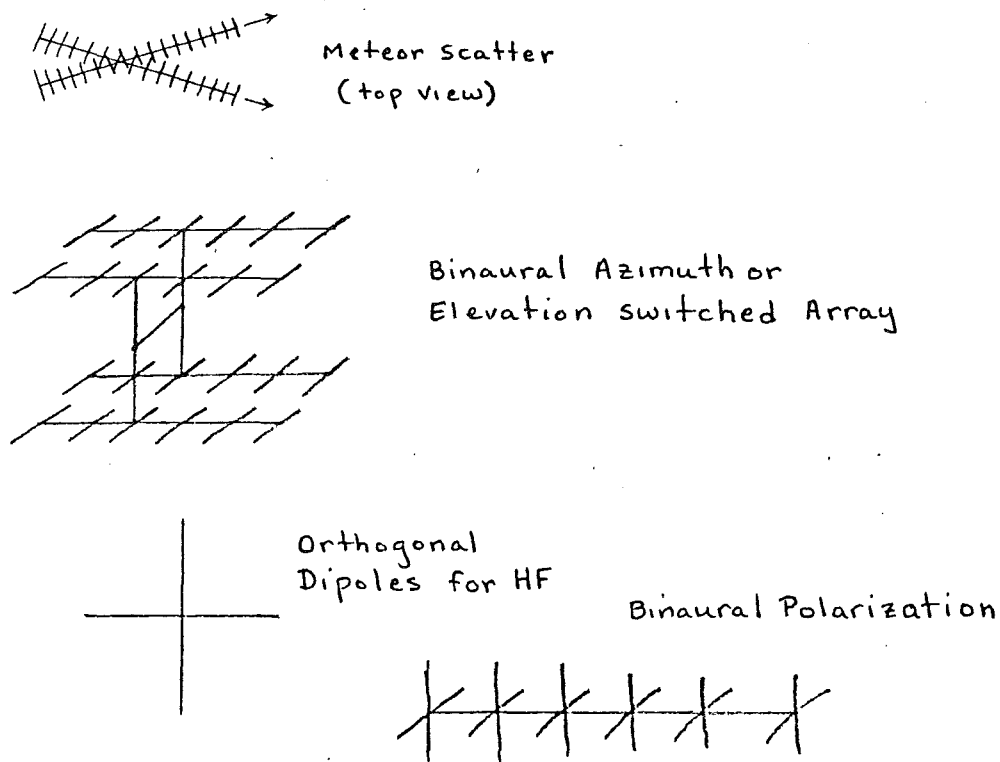 Meteor Scatter
(top view)
Binaural Azimuth or
Elevation switched Array
Orthogonal
Dipoles for HF
Binaural Polarization